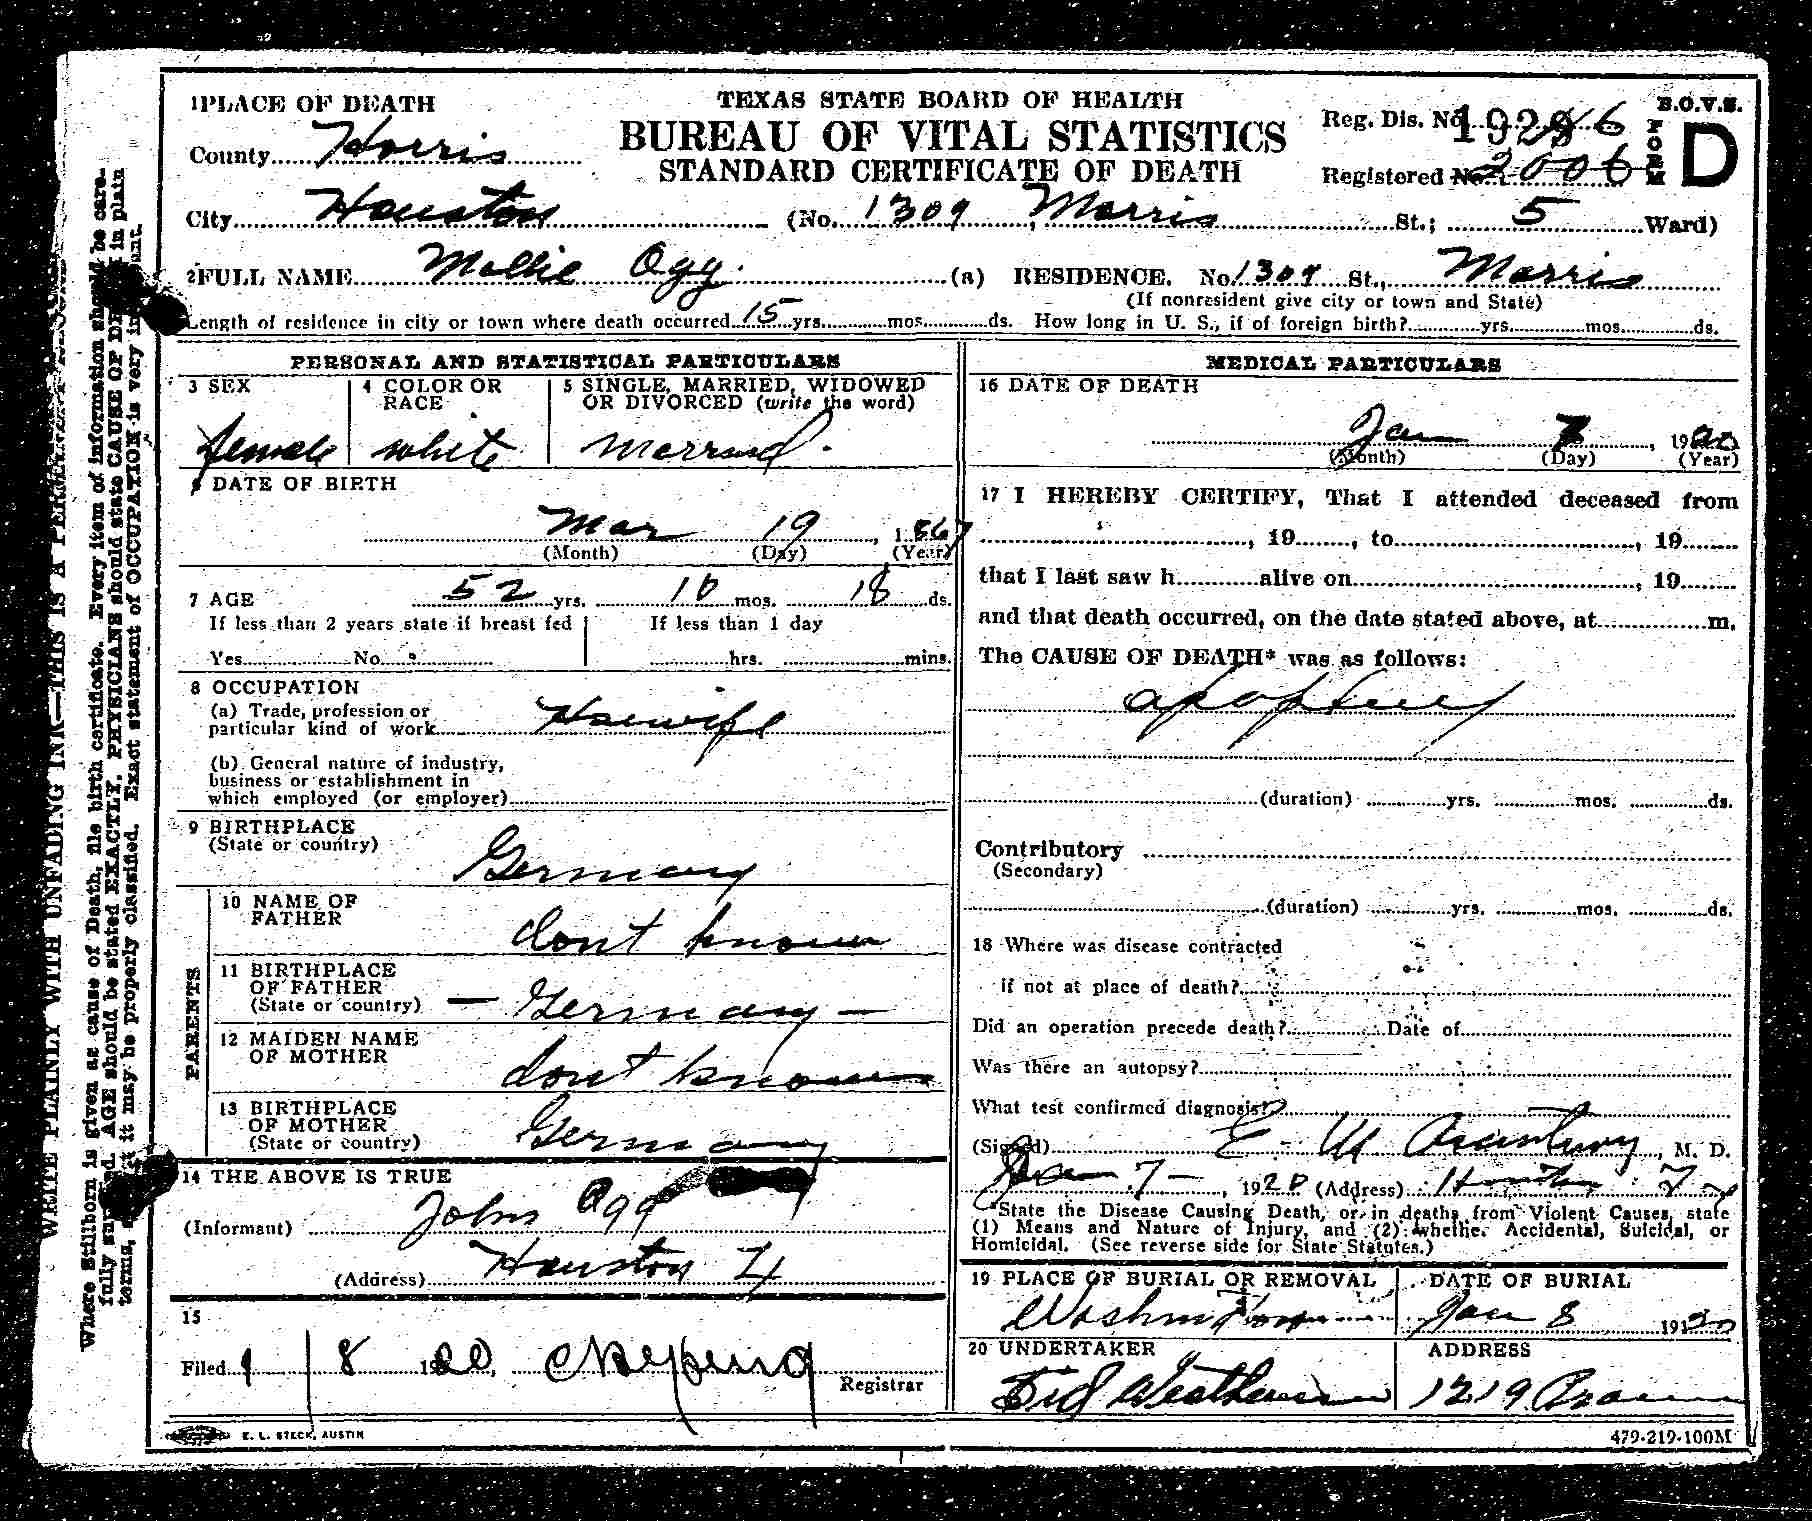 1 PLACE OF DEATH
TEXAS STATE BOARD OF HEALTH
BUREAU OF VITAL STATISTICS
STANDARD CERTIFICATE OF DEATH
B.O.V.S.
FORM D
Reg. Dis. No.
Registered No. 2006
County Harris
City Houston (No. 1309, Morris St.; 5 Ward)
2 FULL NAME Mollie Ogg. (a) RESIDENCE. No. 1309 St., Morris
(If nonresident give city or town and State)
Length of residence in city or town where death occurred 15 yrs. mos. ds. How long in U. S., if of foreign birth? yrs. mos. ds.
PERSONAL AND STATISTICAL PARTICULARS
3 SEX
female
4 COLOR OR RACE
white
5 SINGLE, MARRIED, WIDOWED
OR DIVORCED (write the word)
Married.
6 DATE OF BIRTH
Mar 19, 1867
(Month) (Day) (Year)
7 AGE 52 yrs. 10 mos. 18 ds.
If less than 2 years state if breast fed
Yes No
If less than 1 day
hrs. mins.
8 OCCUPATION
(a) Trade, profession or
particular kind of work Housewife
(b) General nature of industry,
business or establishment in
which employed (or employer)
9 BIRTHPLACE
(State or country)
Germany
PARENTS
10 NAME OF
FATHER
dont know
11 BIRTHPLACE
OF FATHER
(State or country) — Germany —
12 MAIDEN NAME
OF MOTHER
dont know
13 BIRTHPLACE
OF MOTHER
(State or country) Germany
14 THE ABOVE IS TRUE
(Informant) John Ogg
(Address) Houston Tx
15
Filed 1/8 1920,
Registrar
E. L. STECK, AUSTIN
MEDICAL PARTICULARS
16 DATE OF DEATH
Jan 7, 1920
(Month) (Day) (Year)
17 I HEREBY CERTIFY, That I attended deceased from
, 19 , to , 19
that I last saw h alive on , 19
and that death occurred, on the date stated above, at m.
The CAUSE OF DEATH* was as follows:
apoplexy
(duration) yrs. mos. ds.
Contributory
(Secondary)
(duration) yrs. mos. ds.
18 Where was disease contracted
if not at place of death?
Did an operation precede death? Date of
Was there an autopsy?
What test confirmed diagnosis?
(Signed) E M , M. D.
Jan 7 - , 1920 (Address) Houston Tx
*State the Disease Causing Death, or in deaths from Violent Causes, state
(1) Means and Nature of Injury, and (2) whether Accidental, Suicidal, or
Homicidal. (See reverse side for State Statutes.)
19 PLACE OF BURIAL OR REMOVAL
Washington
DATE OF BURIAL
Jan 8 1920
20 UNDERTAKER
Sid Westheimer
ADDRESS
1219
479-219-100M
WRITE PLAINLY WITH UNFADING INK—THIS IS A PERMANENT
Where Stillborn is given as cause of Death, file birth certificate. Every item of information should be care-
fully supplied. AGE should be stated EXACTLY. PHYSICIANS should state CAUSE OF DEATH in plain
terms, it may be properly classified. Exact statement of OCCUPATION is very important.